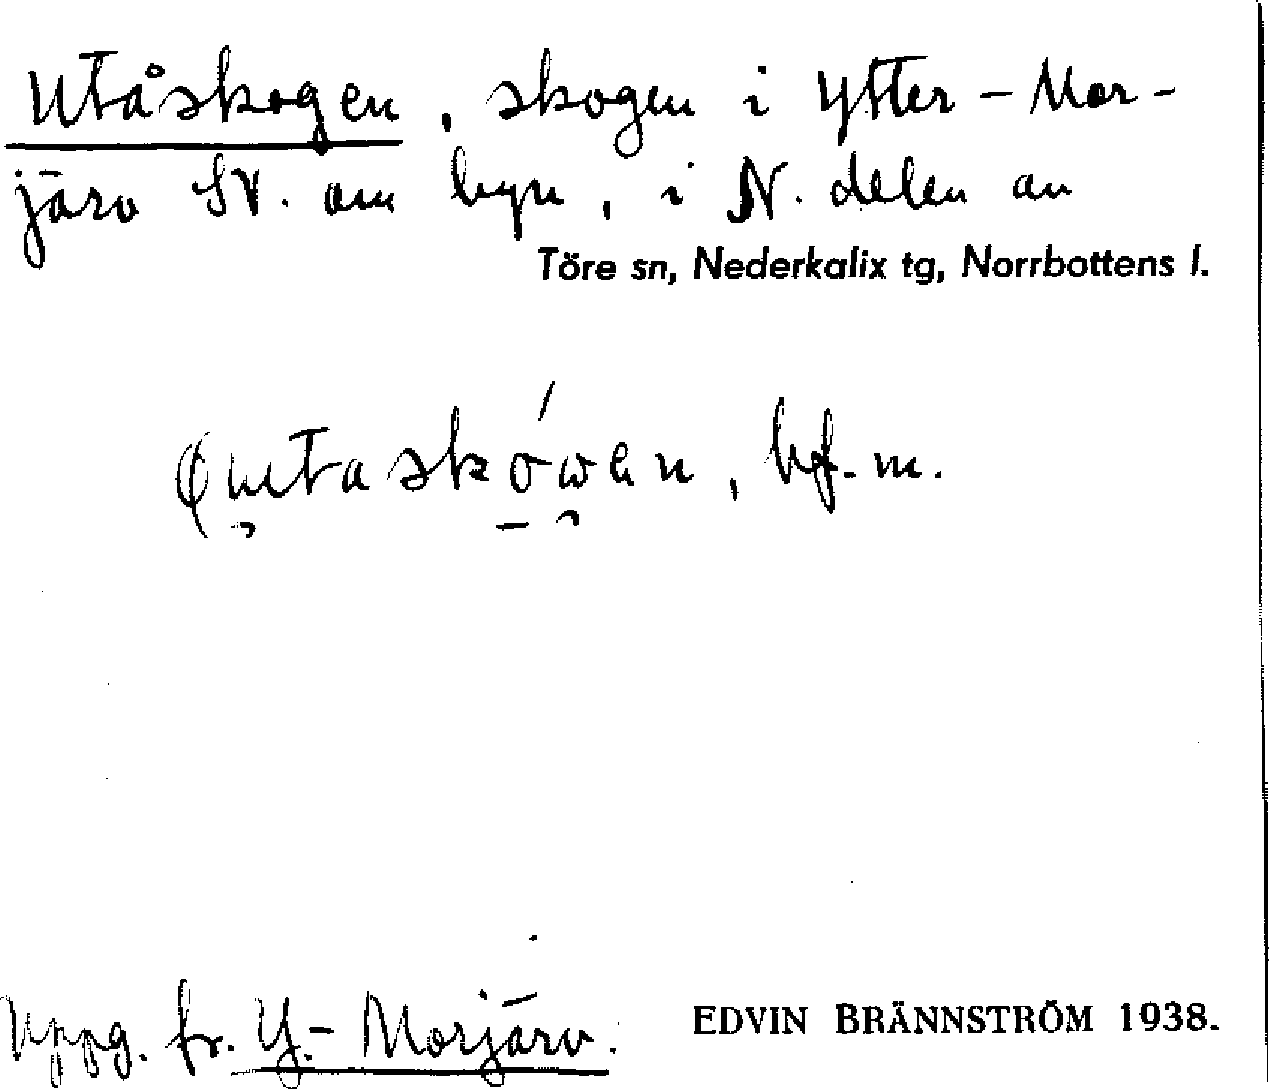 Utåskogen, skogen i Ytter-Mor-
järv SV. om byn, i N. delen av
Töre sn, Nederkalix tg, Norrbottens l.
bf. m.
Uppg. fr. Y.-Morjärv.
EDVIN BRÄNNSTRÖM 1938.